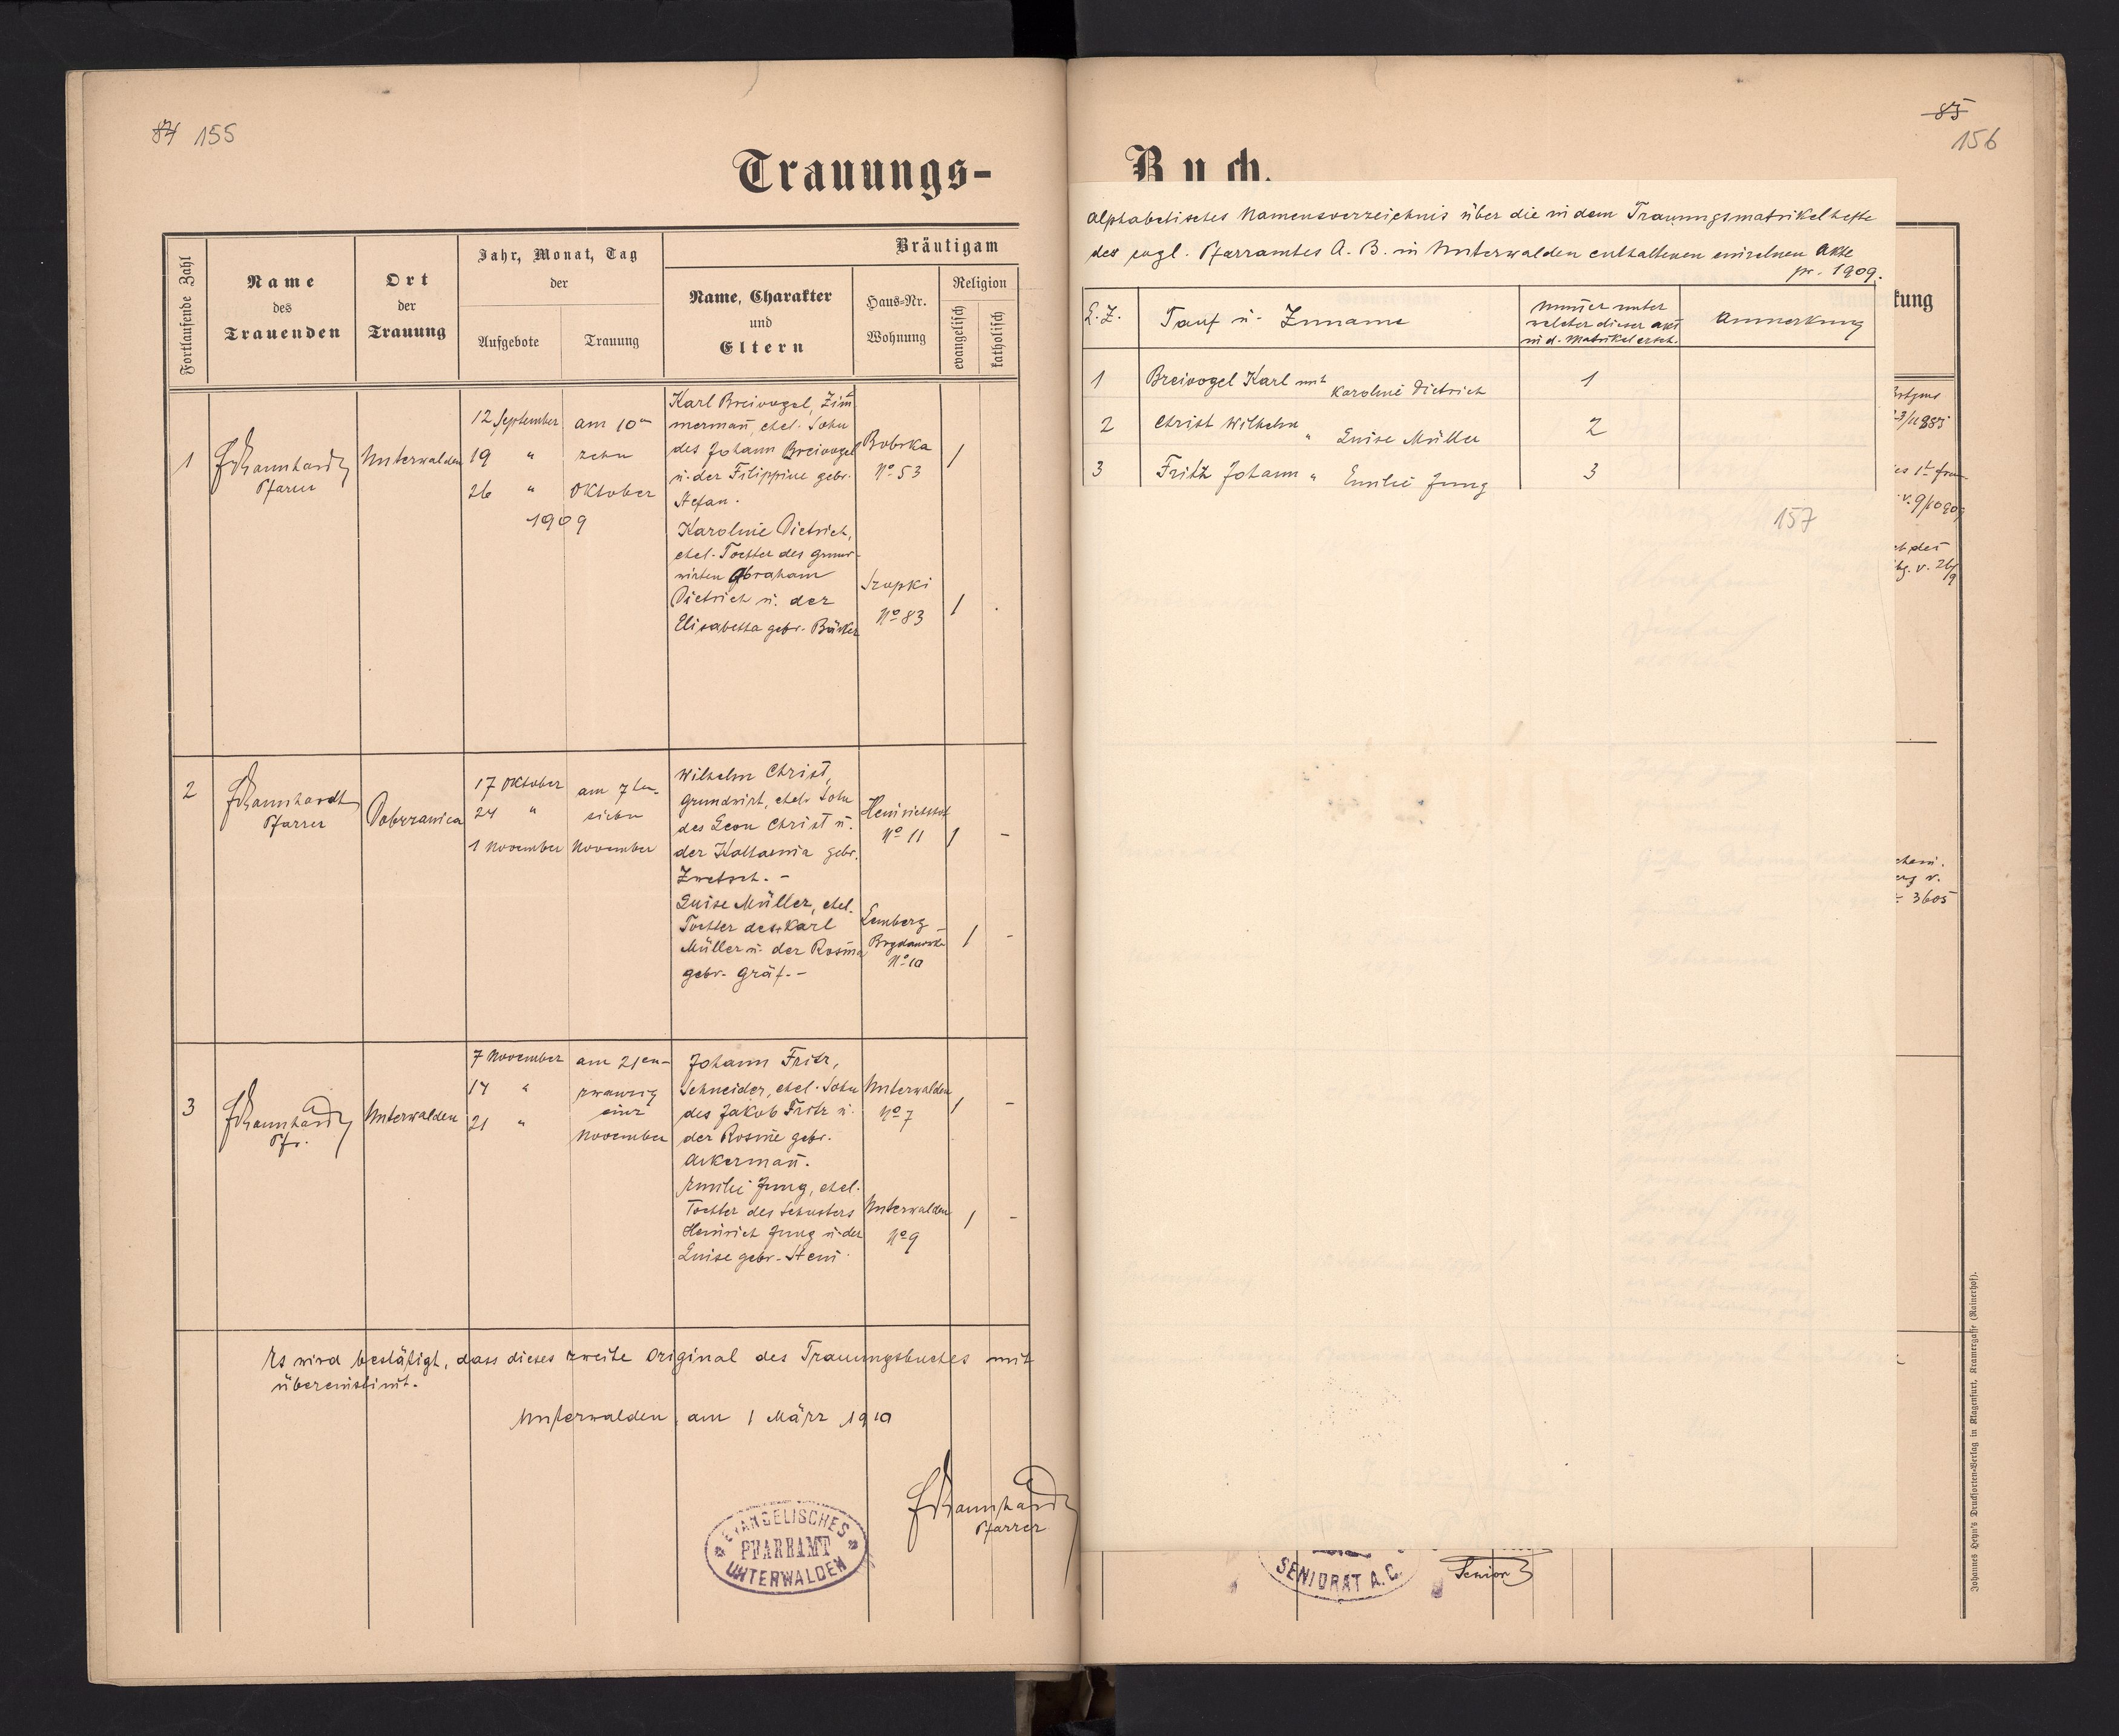 84 155
Trauungs-
Fortlaufende Zahl
Name
des
Trauenden
Ort
der
Trauung
Jahr, Monat, Tag
der
Aufgebote
Trauung
Bräutigam
Name, Charakter
und
Eltern
Haus-Nr.
Wohnung
Religion
evangelisch
katholisch
1
Pfarrer
Unterwalden
12 September
19 "
26 "
1909
am 10
zehn
Oktober
Karl Breivogel, Zim̄
mermañ, ehel. Sohn
des Johann Breivogel
u. der Filippine gebr.
Stefan.
Bobrka
Nº 53
1
Karoline Dietrich,
ehel. Tochter des Grund-
wirten Abraham
Dietrich u. der
Elisabetha gebr. Bäcker
Szopki
Nº 83
1
2
Pfarrer
Dobrzanica
17 Oktober
24 "
1 November
am 7ten
sieben
November
Wilhelm Christ,
Grundwirt, ehel. Sohn
des Leon Christ u.
der Katharina gebr.
Zwetsch. -
Heinrichshof
Nº 11
1 -
Luise Müller, ehel.
Tochter des Karl
Müller u. der Rosina
gebr. Gräf. -
Lemberg
Bogdanowka
Nº 10
1 -
3
Pfr.
Unterwalden
7 November
14 "
21 "
am 21en-
zwanzig
eins
November
Johann Fritz,
Schneider, ehel. Sohn
des Jakob Fritz u.
der Rosine gebr.
Ackermañ.
Unterwalden
Nº 7
1 -
Emilie Jung, ehel.
Tochter des Schusters
Heinrich Jung u. der
Luise gebr. Stein.
Unterwalden
Nº 9
1 -
Es wird bestätigt, dass dieses zweite Original des Trauungsbuches mit
übereinstim̄t.
Unterwalden am 1 März 1910
Pfarrer
EVANGELISCHES
PFARRAMT
UNTERWALDEN
85
156
Buch.
Alphabetisches Namensverzeichnis über die in dem Trauungsmatrikelhefte
des evgl. Pfarramtes A. B. in Unterwalden enthaltenen einzelnen Akte
pr. 1909.
L. Z.
Tauf u. Zuname
Num̄er unter
welcher dieser Akt
in d. Matrikel ersch.
Anmerkung
1 Breivogel Karl mit Karoline Dietrich 1
2 Christ Wilhelm " Luise Müller 2
3 Fritz Johann " Emilie Jung 3
157
kung
3605
SENIORAT A. C.
Senior
Johannes Heyn's Drucksorten-Verlag in Klagenfurt, Kramergasse (Rainerhof).